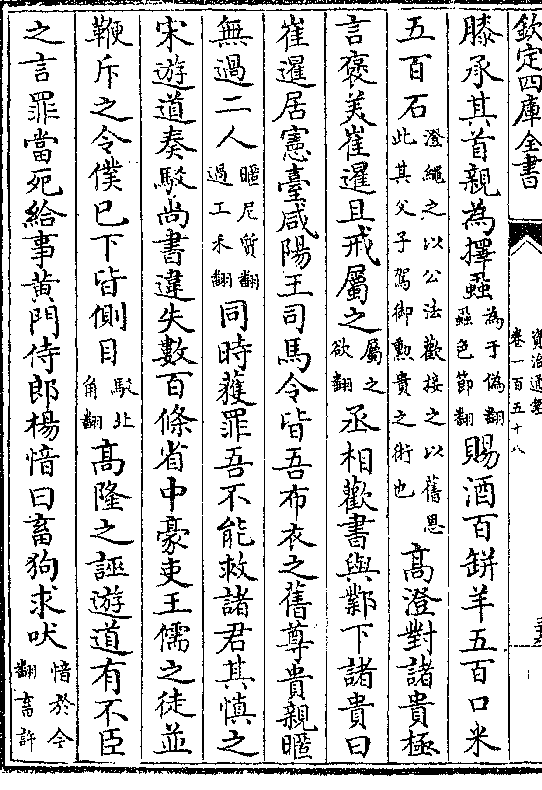 欽定四庫全書
資治通鑑
卷一百五十八
膝承其首親為擇蝨為于偽翻蝨色節翻賜酒百缾羊五百口米
五百石澄繩之以公法歡接之以舊恩此其父子駕御勳貴之術也高澄對諸貴極
言褒美崔暹且戒屬之屬之欲翻丞相歡書與鄴下諸貴曰
崔暹居憲臺咸陽王司馬令皆吾布衣之舊尊貴親暱
無過二人暱尼質翻過工禾翻同時獲罪吾不能救諸君其慎之
宋遊道奏駁尚書違失數百條省中豪吏王儒之徒並
鞭斥之令僕已下皆側目駁北角翻高隆之誣遊道有不臣
之言罪當死給事黄門侍郎楊愔曰畜狗求吠愔於今翻畜許